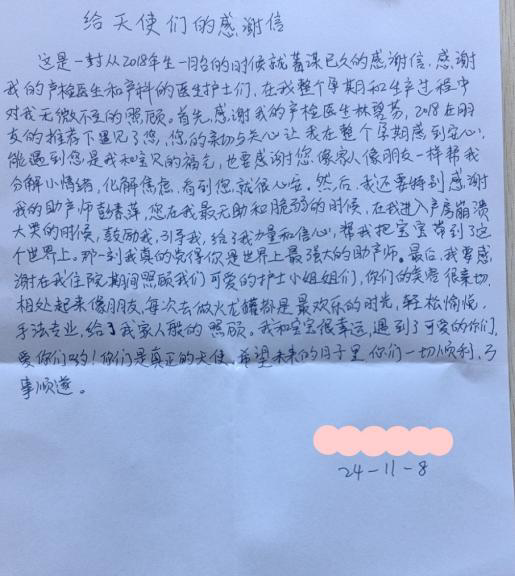 给天使们的感谢信
这是一封从2018年生一月的时候就蓄谋已久的感谢信，感谢
我的产检医生和产科的医生护士们，在我整个孕期和生产过程中
对我无微不至的照顾。首先，感谢我的产检医生林碧芬，2018在朋
友的推荐下遇见了您，您的亲切与关心让我在整个孕期感到安心，
能遇到您是我和宝贝的福气，也要感谢您像家人像朋友一样帮我
分解小情绪，化解焦虑，看到您就很心安。然后，我还要特别感谢
我的助产师彭香萍，您在我最无助和脆弱的时候，在我进入产房崩溃
大哭的时候，鼓励我，引导我，给了我力量和信心，帮我把宝宝带到了这
个世界上。那一刻我真的觉得你是世界上最强大的助产师。最后，我要感
谢在我住院期间照顾我们可爱的护士小姐姐们，你们的笑容很亲切，
相处起来像朋友，每次去做火龙罐都是最欢乐的时光，轻松愉悦，
手法专业，给了我家人般的照顾。我和宝宝很幸运，遇到了可爱的你们，
爱你们哟！你们是真正的天使，希望未来的日子里你们一切顺利，万
事顺遂。
24-11-8